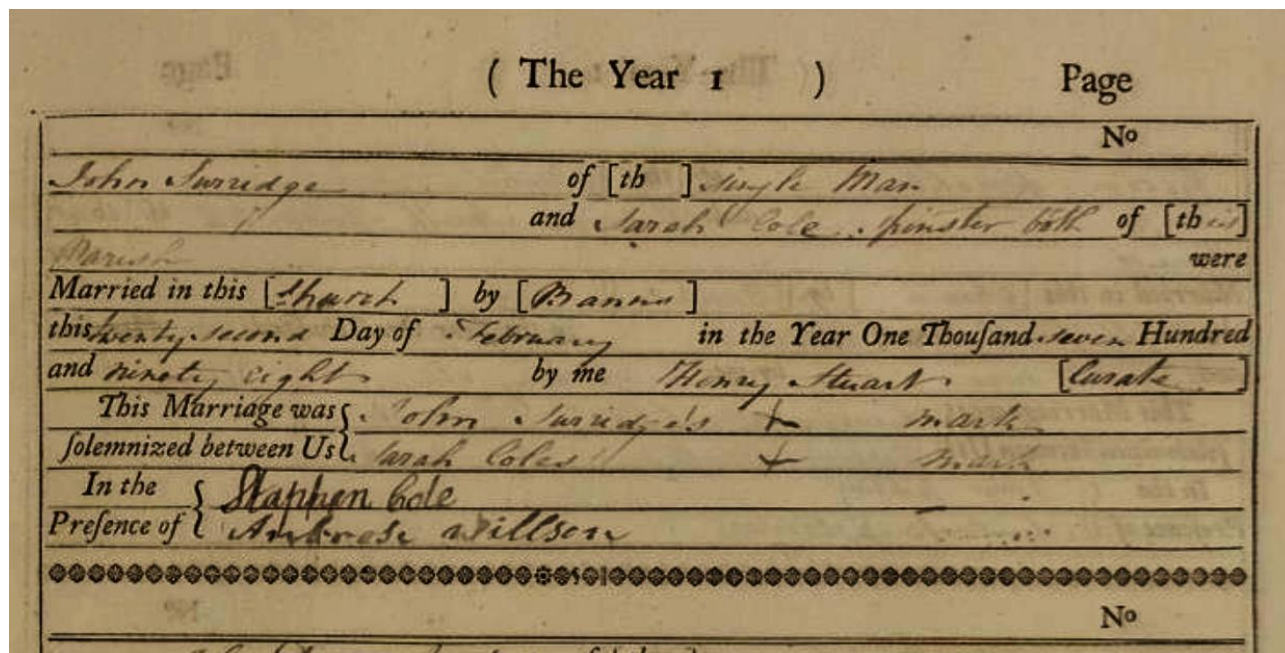 ( The Year 1 ) Page
No
John Surridge of [th ] single Man
and Sarah Cole spinster both of [this]
Parish were
Married in this [Church ] by [Banns ]
this twenty second Day of February in the Year One Thouſand seven Hundred
and ninety eight by me Henry Stuart [Curate ]
This Marriage was { John Surridge's + mark
ſolemnized between Us { Sarah Coles + mark
In the { Staphen Cole
Preſence of { Ambrose Willson
No